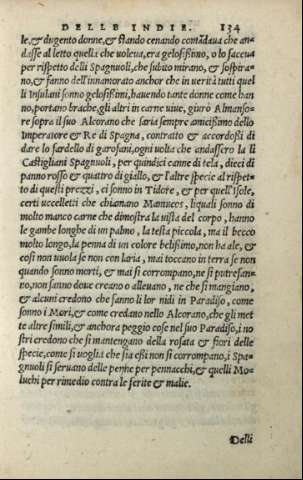 DELLE INDIE. 134
le, & dugento donne, & stando cenando comãdaua che an=
dasse al letto quella che uoleua, era gelosissimo, o lo faceua
per rispetto delli Spagnuoli, che subito mirano, & sospira=
no, & fanno dell'innamorato anchor che in uerità tutti quel
li Insulani sonno gelosissimi, hauendo tante donne come han
no, portano brache, gli altri in carne uiue, giurò Almanso=
re sopra il suo Alcorano che saria sempre amicissimo dello
Imperatore & Re di Spagna, contratto & accordossi di
dare lo fardello di garofani, ogni uolta che andassero la li
Castigliani Spagnuoli, per quindici canne di tela, dieci di
panno rosso & quattro di giallo, & l'altre specie al rispet=
to di questi prezzi, ci sonno in Tidore, & per quell'Isole,
certi uccelletti che chiamano Manucos, liquali sonno di
molto manco carne che dimostra la uista del corpo, hanno
le gambe longhe di un palmo, la testa piccola, ma il becco
molto longo, la penna di un colore belissimo, non ha ale, &
cosi non uuola se non con laria, mai toccano in terra se non
quando sonno morti, & mai si corrompano, ne si putrefan=
no, non sanno doue creano o alleuano, ne che si mangiano,
& alcuni credono che fanno li lor nidi in Paradiso, come
sonno i Mori, & come credano nello Alcorano, che gli met
te altre simili, & anchora peggio cose nel suo Paradiso, i no
stri credono che si mantengano della rosata & fiori delle
specie, come si uoglia che sia essi non si corrompano, i Spa=
gnuoli si seruano delle penne per pennacchi, & quelli Mo=
luchi per rimedio contra le ferite & malie.
Delli